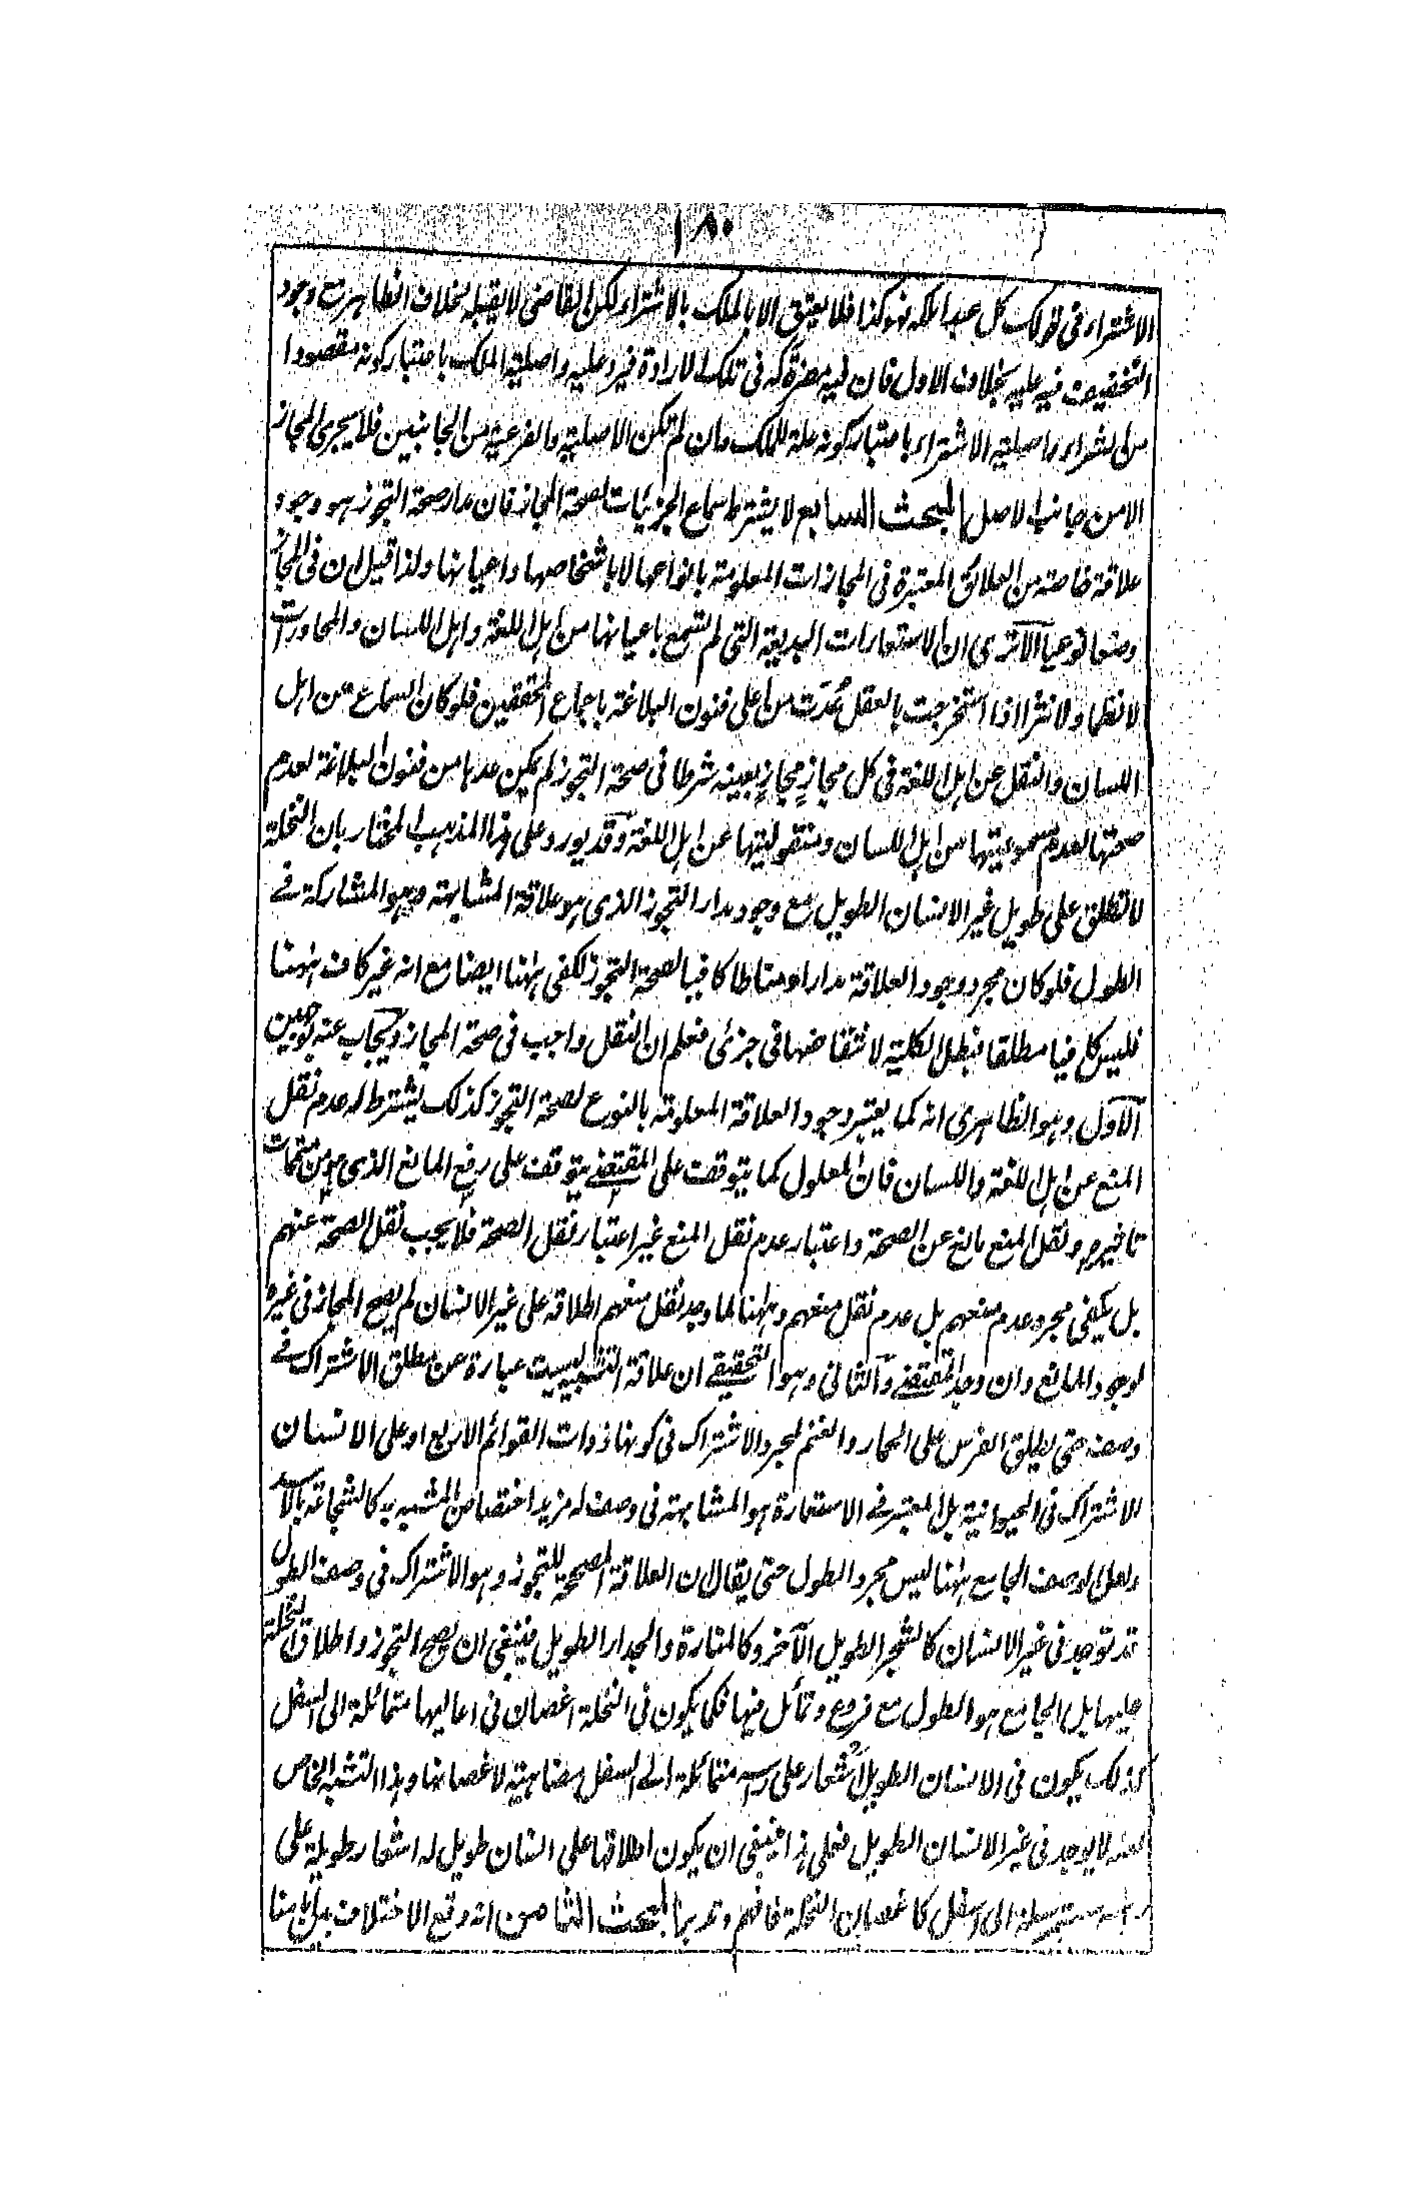 ١٨٠
الاشتراء فى قولك كل عبد املكه فهو كذا فلا يعتق الا بالملك بالاشتراء لكن القاضى لا يقبله بخلاف الظاهر مع وجود
التخفيف فيه عليه بخلاف الاول فان فيه مضرة له فى تلك الارادة فيرد عليه واصلية الملك باعتبار كونه مقصودا
من الشراء واصلية الاشتراء باعتبار كونه علة للملك وان لم تكن الاصلية والفرعية من الجانبين فلا يجرى المجاز
الا من جانب الاصل المبحث السابع لا يشترط سماع الجزئيات لصحة المجاز فان مدار صحة التجوز هو وجود
علاقة خاصة من العلائق المعتبرة فى المجازات المعلومة بانواعها لا باشخاصها واعيانها ولذا قيل ان فى المجاز
وضعا نوعيا الا ترى ان الاستعارات البديعة التى لم تسمع باعيانها من اهل اللغة واهل اللسان والمحاورات
لا نظما ولا نثرا اذا استخرجت بالعقل عدت من اعلى فنون البلاغة باجماع المحققين فلو كان السماع عن اهل
اللسان والنقل عن اهل اللغة فى كل مجاز مجاز بعينه شرطا فى صحة التجوز لم يمكن عدها من فنون البلاغة لعدم
صحتها لعدم مسموعيتها من اهل اللسان ومنقوليتها عن اهل اللغة وقد يورد على هذا المذهب المختار بان النخلة
لا تطلق على طويل غير الانسان الطويل مع وجود مدار التجوز الذى هو علاقة المشابهة وهو المشاركة فى
الطول فلو كان مجرد وجود العلاقة مدارا ومناطا كافيا لصحة التجوز لكفى ههنا ايضا مع انه غير كاف ههنا
فليس كافيا مطلقا فبطل الكلية لانتقاضها فى جزئى فعلم ان النقل واجب فى صحة المجاز ويجاب عنه بوجهين
الاول وهو الظاهرى انه كما يعتبر وجود العلاقة المعلومة بالنوع لصحة التجوز كذلك يشترط له عدم نقل
المنع عن اهل اللغة واللسان فان المعلول كما يتوقف على المقتضى يتوقف على رفع المانع الذى هو من متممات
تاثيره ونقل المنع مانع عن الصحة واعتبار عدم نقل المنع غير اعتبار نقل الصحة فلا يجب نقل الصحة عنهم
بل يكفى مجرد عدم منعهم بل عدم نقل منعهم وههنا لما وجد نقل منعهم اطلاقه على غير الانسان لم يصح المجاز فى غيره
لوجود المانع وان وجد المقتضى والثانى وهو التحقيقى ان علاقة التشبيه ليست عبارة عن مطلق الاشتراك فى
وصف حتى يطلق الفرس على الحمار والغنم لمجرد الاشتراك فى كونها ذوات القوائم الاربع او على الانسان
الاشتراك فى الحيوانية بل المعتبر فى الاستعارة هو المشابهة فى وصف له مزيد اختصاص المشبه به كالشجاعة بالاسد
ولعل الوصف الجامع ههنا ليس مجرد الطول حتى يقال ان العلاقة المصححة للتجوز وهو الاشتراك فى وصف الطول
قد توجد فى غير الانسان كالشجر الطويل الآخر وكالمنارة والجدار الطويل فينبغى ان يصح التجوز واطلاق النخلة
عليها بل الجامع هو الطول مع فروع وتمائل فيها فكما يكون فى النخلة اغصان فى اعاليها متمائلة الى السفل
كذلك يكون فى الانسان الطويل اشعار على راسه متمائلة الى السفل مضاهية لاغصانها وهذا التشبه الخاص
لا يوجد فى غير الانسان الطويل فعلى هذا ينبغى ان يكون اطلاقها على انسان طويل له اشعار طويلة على
راسه مسترسلة الى اسفل كاغصان النخلة فافهم وتدبر المبحث الثامن انه وقع الاختلاف هل ههنا